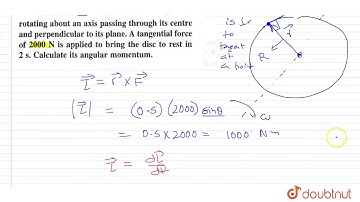 rotating about an axis passing through its centre
and perpendicular to its plane. A tangential force
of 2000 N is applied to bring the disc to rest in
2 s. Calculate its angular momentum.
is ⊥r
to
at
a point
R
r⃗
τ⃗ = r⃗ × F⃗
|τ⃗| = (0.5) (2000) sinθ
ω
= 0.5 × 2000 = 1000 Nm
τ⃗ = dL⃗/dt
doubtnut